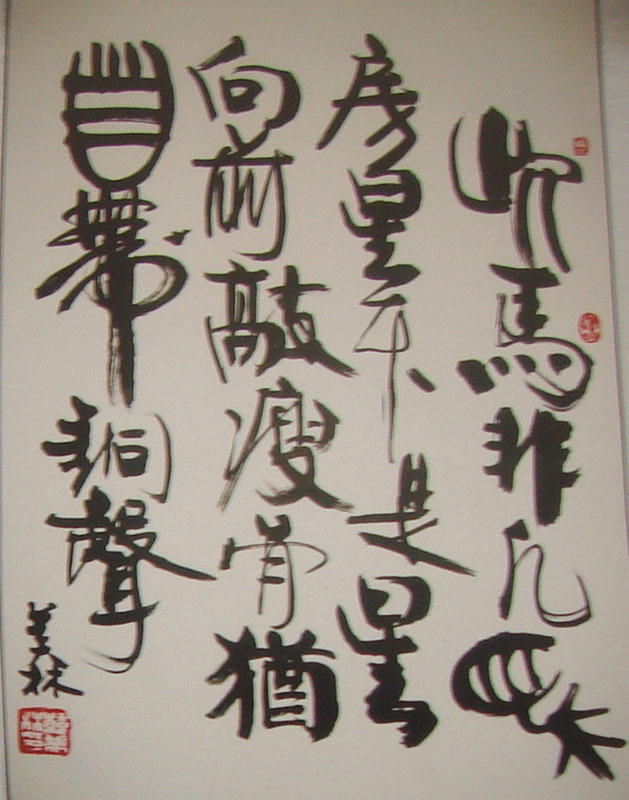 此馬非凡馬
房星本是星
向前敲瘦骨猶
自帶銅聲
美林